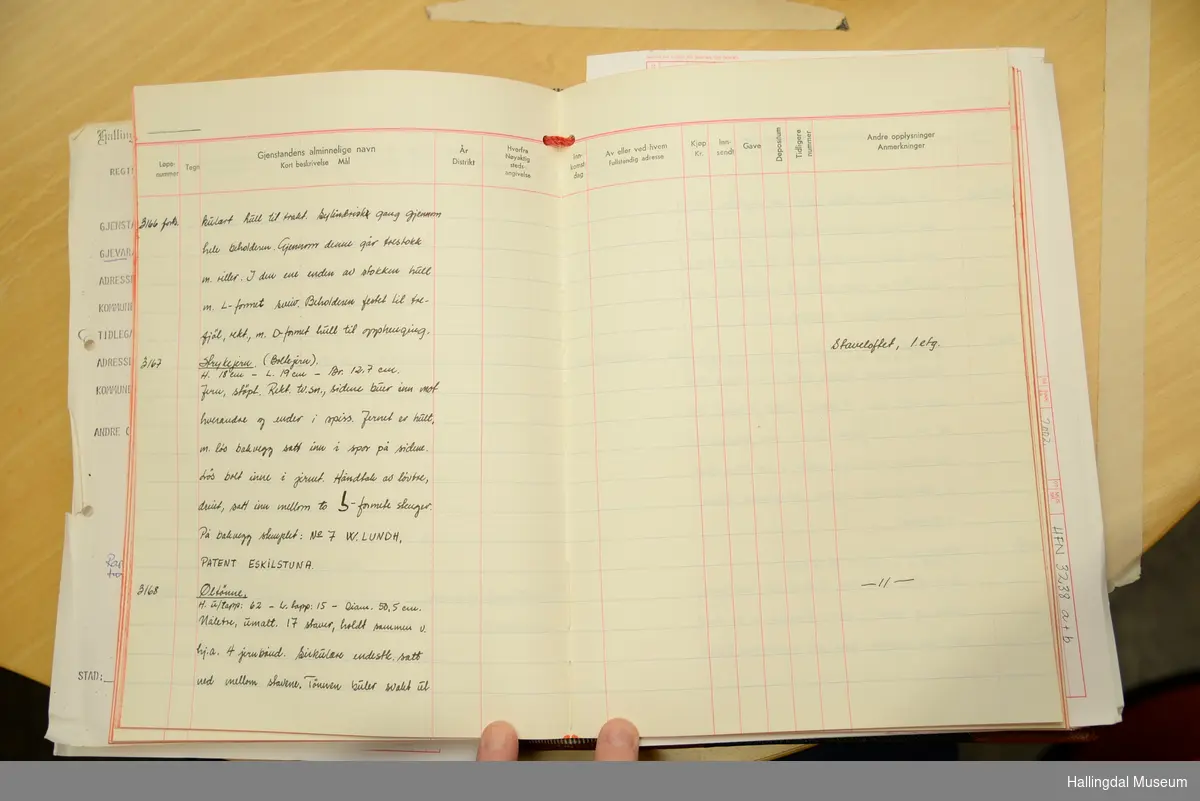 Gjenstandens alminnelige navn
Kort beskrivelse Mål
Løpe-
nummer
Tegn
År
Distrikt
Hvorfra
Nøyaktig
steds-
angivelse
Inn-
komst
dag
Av eller ved hvem
Fullstendig adresse
Kjøp
Kr.
Inn-
sendt
Gave
Depositum
Tidligere
nummer
Andre opplysninger
Anmerkninger
3166 forts. kulært hull til trakt. Sylindrisk gang gjennom
hele beholderen. Gjennom denne går trestokk
m. riller. I den ene enden av stokken hull
m. L-formet sveiv. Beholderen festet til tre-
fjøl, rekt, m. D-formet hull til opphenging.
3167 Strykejern. (Boltejern). Staveloftet, 1. etg.
H. 18 cm - L. 19 cm - Br. 12,7 cm.
Jern, støpt. Rekt. tv.sn., sidene buer inn mot
hverandre og ender i spiss. Jernet er hult,
m. løs bakvegg satt inn i spor på sidene.
Løs bolt inne i jernet. Håndtak av løvtre,
dreiet, satt inn mellom to -formete stenger.
På bakvegg stemplet: No 7 W. LUNDH,
PATENT ESKILSTUNA.
3168 Øltønne. —11—
H. u/tapp: 62 - L. tapp: 15 - Diam. 50,5 cm.
Nåletre, umalt. 17 staver, holdt sammen v.
hj.a. 4 jernbånd. Sirkulære endestk. satt
ned mellom stavene. Tønnen buler svakt ut
Halling
REGI
GJENSTA
GJEVARA
ADRESSE
KOMMUNE
TIDLEGA
ADRESSE
KOMMUNE
ANDRE O
STAD:
HFN 3238 a+b
Hallingdal Museum